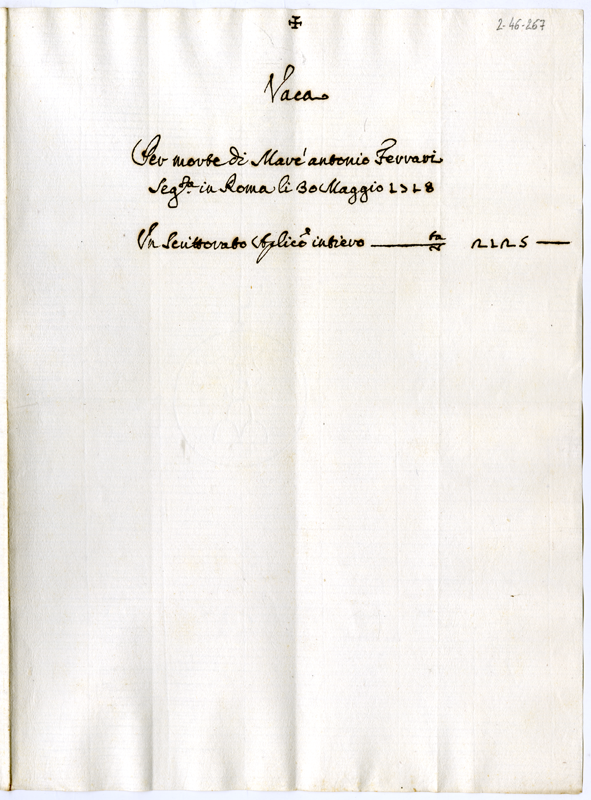 ✠
2-46-267
Vaca
Per morte di Marc'antonio Ferrari
Seg.ta in Roma li 30 Maggio 1718
Un Scrittorato Aplico intiero
2125